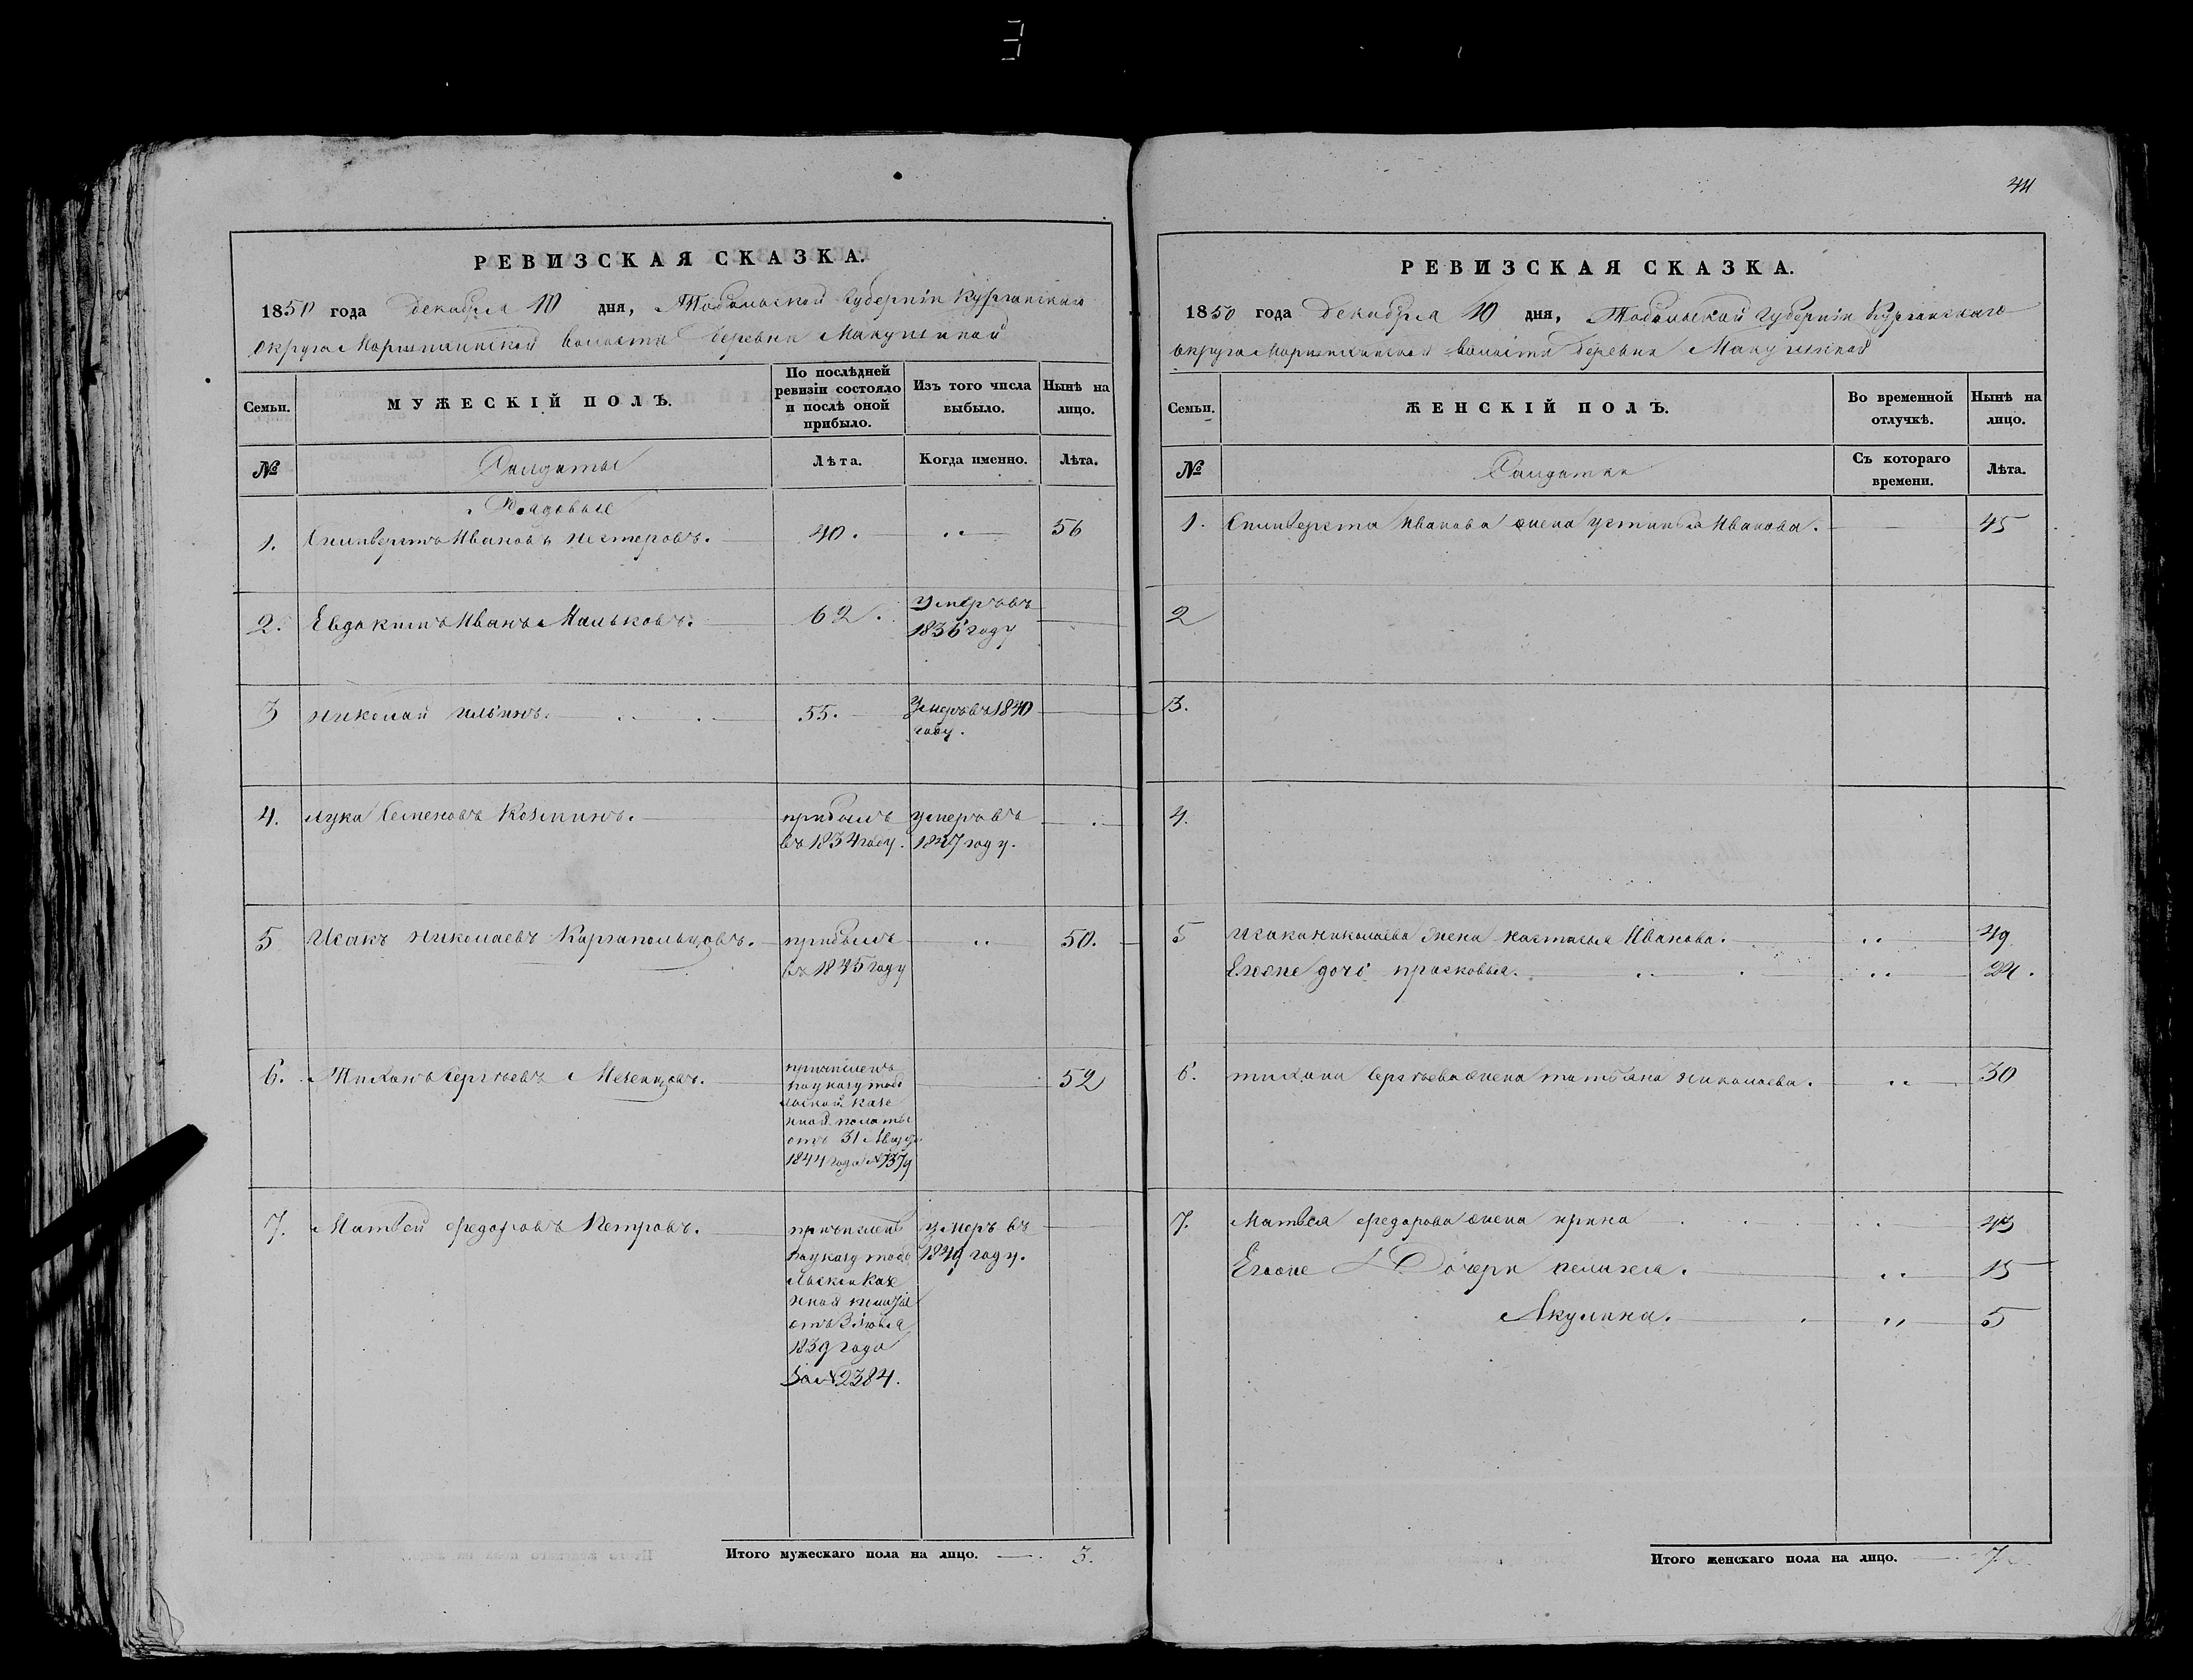 44
РЕВИЗСКАЯ СКАЗКА.
1850 года Декабря 10 дня, Тобольской Губернiи Курганскаго
округа Моршихинской волости деревни Макушиной
Семьи.
МУЖЕСКIЙ ПОЛЪ.
По послѣдней ревизiи состояло и послѣ оной прибыло.
Изъ того числа выбыло.
Нынѣ на лицо.
№
Салдаты
Лѣта.
Когда именно.
Лѣта.
Рядовые
1. Силиверстъ Ивановъ Нестеровъ. 40. 56
2. Евдокимъ Иванъ Мальковъ. 62. Умеръ въ
1836 году
3 Николай Ильинъ. 55. Умеръ въ 1840
году.
4. Лука Семеновъ Козминъ. прибылъ умеръ въ
въ 1834 году. 1847 году.
5 Исакъ Николаевъ Каргапольцовъ. прибылъ 50.
въ 1845 году
6. Тихонъ Сергѣевъ Мезенцовъ. причисленъ 52
по указу тобо
льской казе
нной полаты
отъ 31 Августа
1844 года №7379
7. Матвей Федоровъ Петровъ. причисленъ умеръ въ
по указу тобо 1849 году.
льской Казе
нной полаты
отъ 3 Июля
1839 года
За №2384.
Итого мужескаго пола на лицо. 3.
РЕВИЗСКАЯ СКАЗКА.
1850 года Декабря 10 дня, Тобольской Губернiи Курганскаго
округа Моршихинской волости деревни Макушиной
Семьи.
ЖЕНСКIЙ ПОЛЪ.
Во временной отлучкѣ.
Нынѣ на лицо.
№
Салдатки
Съ котораго времени.
Лѣта.
1. Силиверста Иванова жена устинья Иванова. 45
2
3.
4.
5 Исака Николаева жена настасья Иванова. 49
Евоне дочь прасковья. 24.
6. тихона Сергѣева жена татьяна николаева. 30
7. Матвея федорова жена ирина 43
Евоне Дочери пелагея. 15
Акулина. 5
Итого женскаго пола на лицо. 7.